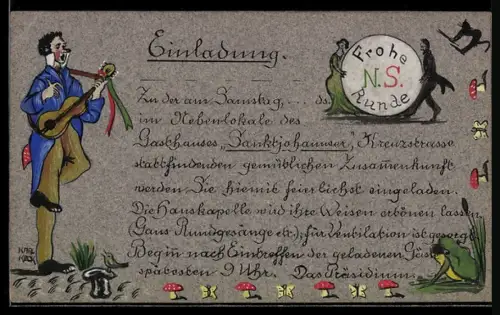 Einladung.
Frohe
N.S.
Runde
Zu der am Samstag, ... ds.
im Nebenlokale des
Gasthauses „Sanktjohannser", Kreuzstrasse
stattfindenden gemütlichen Zusammenkunft
werden Sie hiemit feinlichst eingeladen.
Die Hauskapelle wird ihre Weisen ertönen lassen
(Gans Rundgesänge etc.); für Ventilation ist gesorgt
Beginn nach Eintreffen der geladenen Gäste
spätestens 9 Uhr. Das Präsidium.